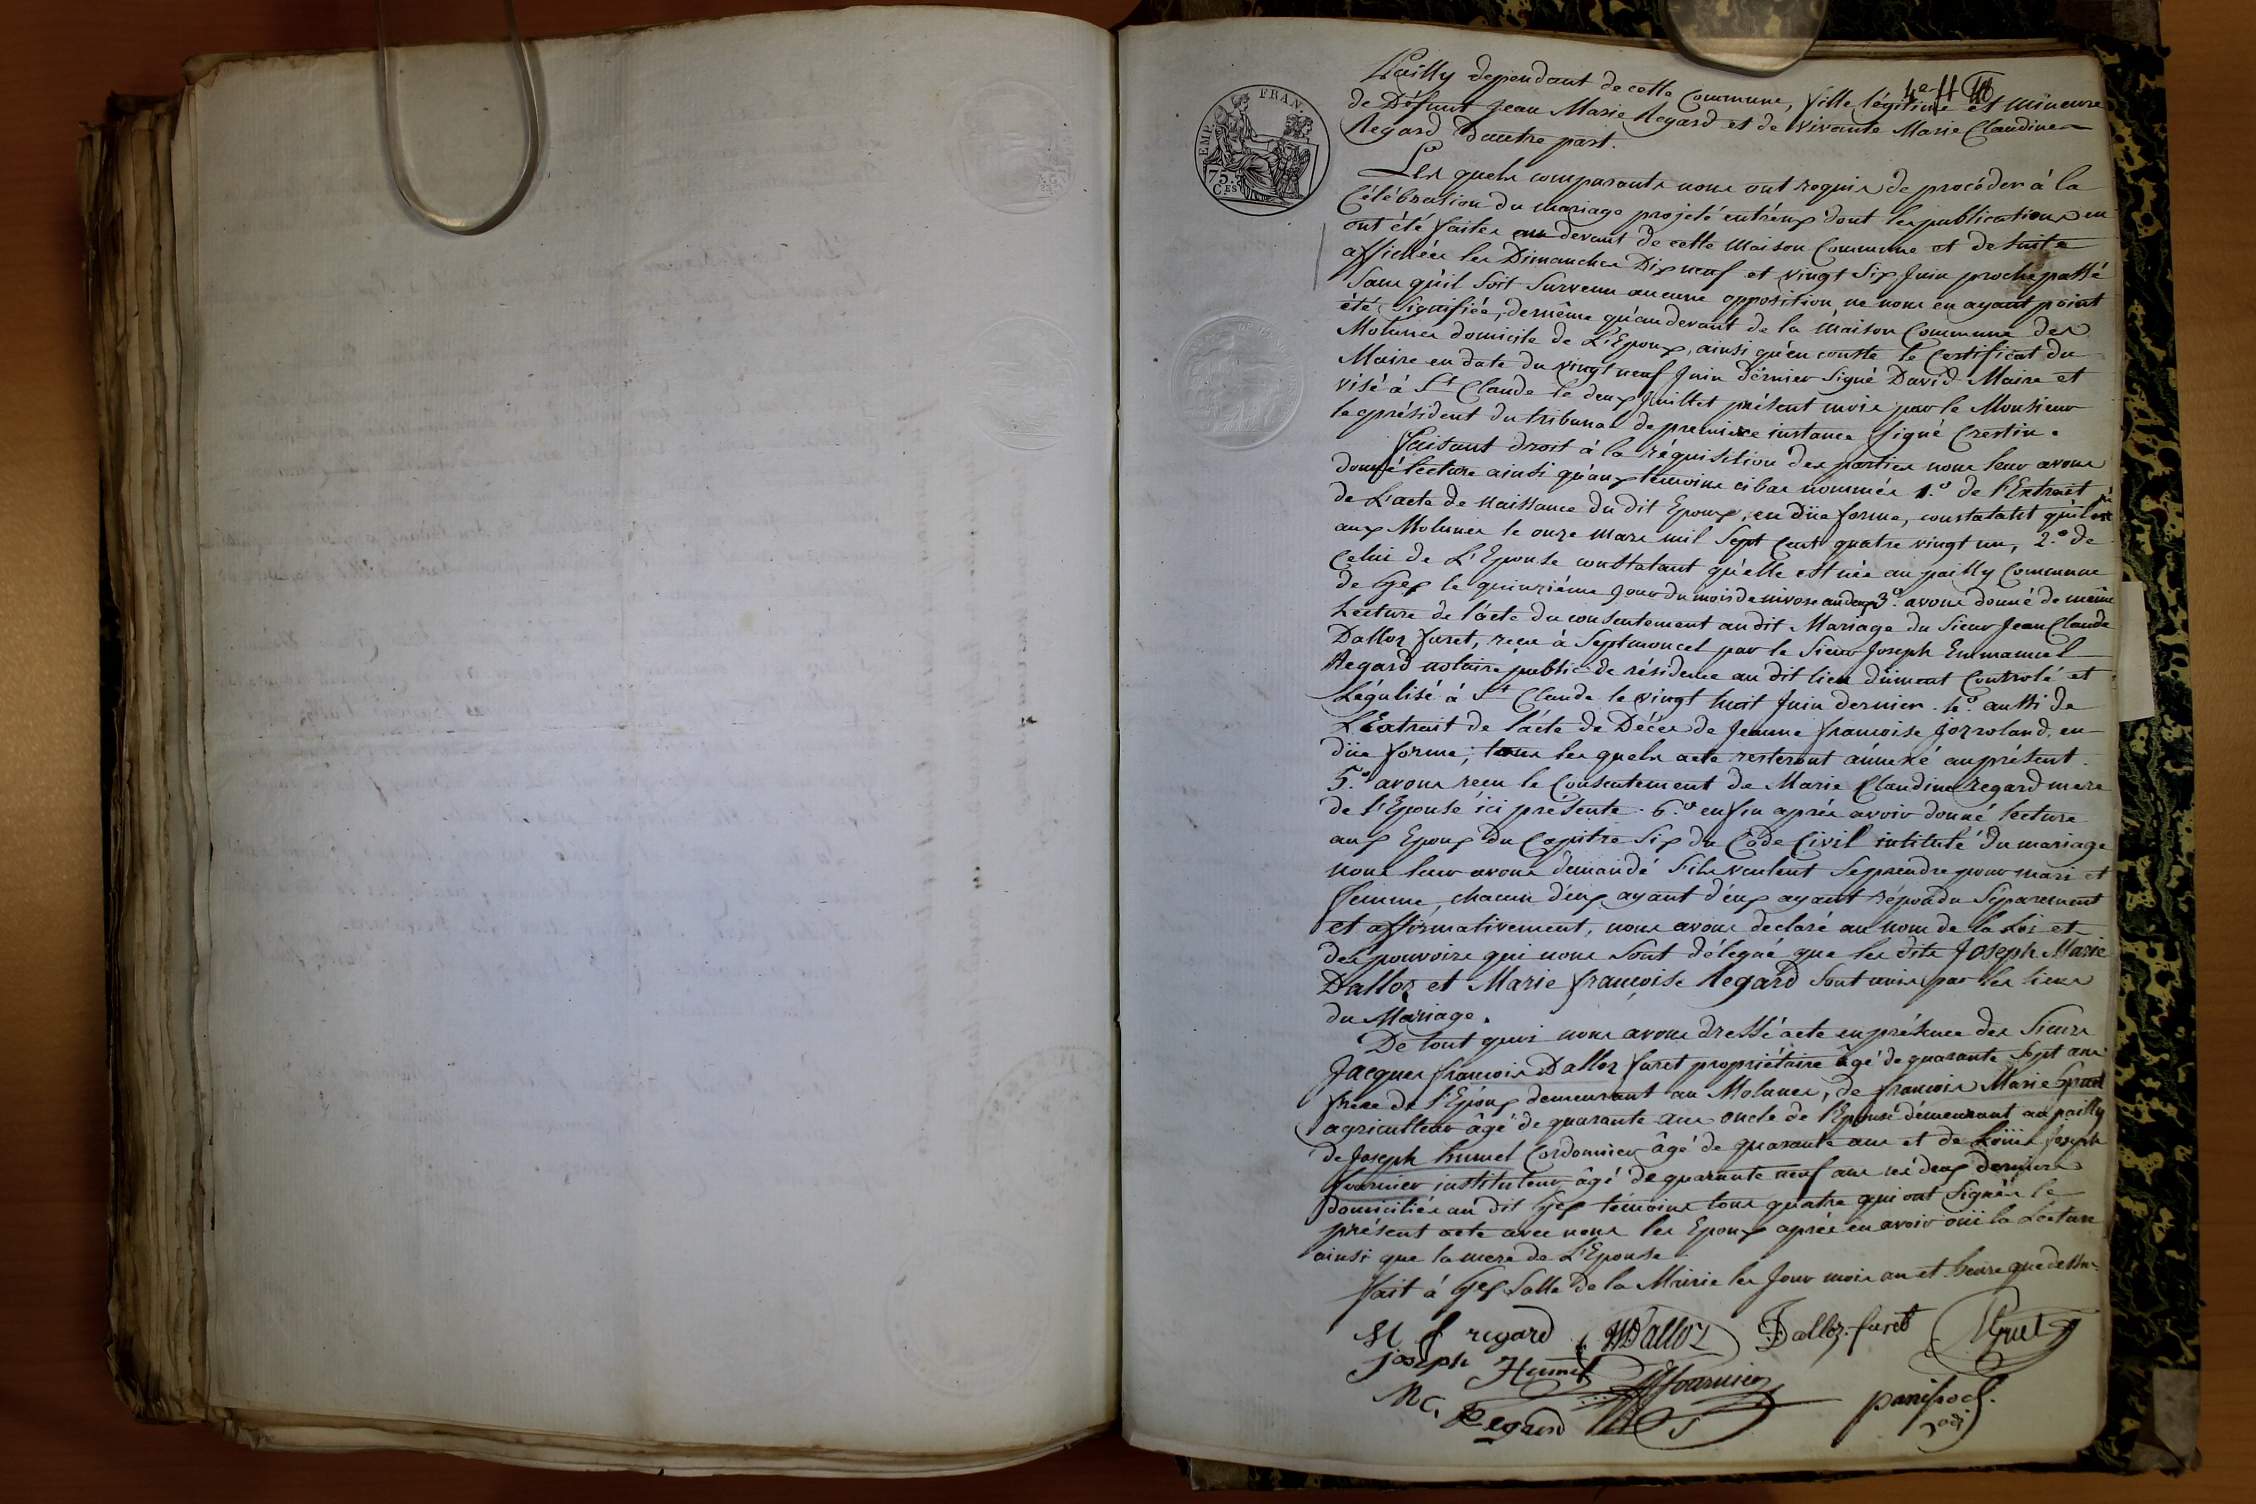 4e ff
Pailly dependant de cette Commune, fille légitime et mineure
de Défunt Jean Marie Regard et de vivante Marie Claudine
Regard d'autre part.
EMP. FRAN.
75. CES
Les quels comparants nous ont requis de procéder à la
Célébration du mariage projeté entr'eux dont les publications en
ont été faites au devant de cette Maison Commune et de suite
affichées les Dimanches Dix neuf et vingt Six Juin proche passé
Sans qu'il Soit Survenu aucune opposition, ne nous en ayant point
été Signifiée, de même qu'au devant de la Maison Commune des
Molunes domicile de L'Epoux, ainsi qu'en conste le Certificat du
Maire en date du vingt neuf Juin dernier Signé David Maire et
visé à St Claude le deux Juillet présent mois par le Monsieur
le président du tribunal de première instance Signé Crestin.
faisant droit à la réquisition des parties nous leur avons
donné lecture ainsi qu'aux témoins ci bas nommés 1.º de l'Extrait
de L'acte de naissance du dit Epoux, en düe forme, constatant qu'il est né
aux Molunes le onze mars mil Sept Cent quatre vingt un, 2.º de
Celui de L'Epouse constatant qu'elle est née au pailly Commune
de Gex le quinzième Jour du mois de nivose an deux 3.º avons donné de même
Lecture de l'acte du consentement au dit Mariage du Sieur Jean Claude
Dalloz furet, recu à Septmoncel par le Sieur Joseph Emmanuel
Regard notaire public de résidence au dit lieu dûment Controlé et
Légalisé à St Claude le vingt huit Juin dernier. 4.º aussi de
L'Extrait de l'acte de Décès de Jeanne francoise Jozroland, en
düe forme; tous les quels acte resteront annexé au présent.
5.º avons recu le Consentement de Marie Claudine regard mere
de l'Epouse ici présente. 6.º enfin après avoir donné lecture
aux Epoux du Capitre Six du Code Civil intitulé du mariage
nous leur avons demandé S'ils veulent Se prendre pour mari et
femme, chacun d'eux ayant d'eux ayant répondu Séparement
et affirmativement, nous avons declaré au nom de la Loi et
des pouvoirs qui nous Sont délegué que les dits Joseph Marie
Dalloz et Marie françoise Regard Sont unis par les liens
du Mariage.
De tout quoi nous avons dressé acte en présence des Sieurs
Jacques francois Dalloz furet propriétaire âgé de quarante Sept ans
frere de l'Epoux demeurant au Molunes, de francois Marie Gruet
agriculteur âgé de quarante ans oncle de l'Epouse demeurant au pailly
de Joseph humel Cordonnier âgé de quarante ans et de Loüis Joseph
fournier instituteur âgé de quarante neuf ans les deux derniers
domiciliés au dit Gex témoins tous quatre qui ont Signés le
présent acte avec nous les Epoux après en avoir oüi la Lecture
ainsi que la mere de L'Epouse
fait à Gex Salle de la Mairie les Jour mois an et heure que dessus.
M f regard JMDalloz Dalloz-furet Gruet
joseph Humel fournier
M C. Regard